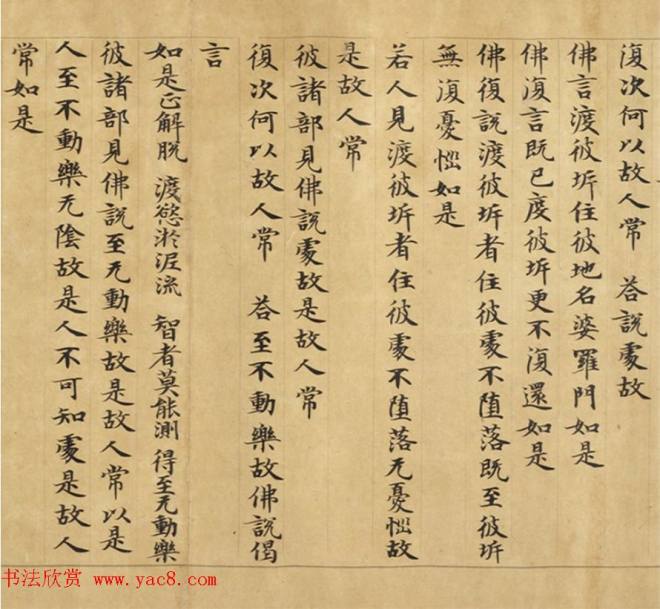 復次何以故人常　荅說處故
佛言渡彼圻住彼地名婆羅門如是
佛復言既已度彼圻更不復還如是
佛復說渡彼圻者住彼處不墮落既至彼圻
無復憂惱如是
若人見渡彼圻者住彼處不墮落无憂惱故
是故人常
彼諸部見佛說處故是故人常
復次何以故人常　荅至不動樂故佛說偈
言
如是正解脫　渡慾淤泥流　智者莫能測　得至无動樂
彼諸部見佛說至无動樂故是故人常以是
人至不動樂无陰故是人不可知處是故人
常如是
书法欣赏 www.yac8.com